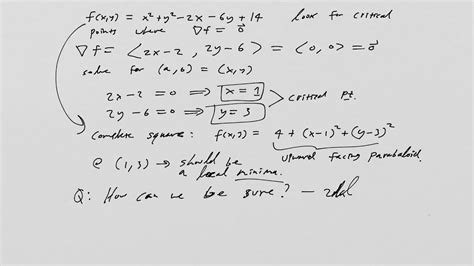 f(x,y) = x² + y² - 2x - 6y + 14 look for critical
points where ∇f = 0⃗
∇f = ⟨2x - 2, 2y - 6⟩ = ⟨0, 0⟩ = 0⃗
solve for (a,b) = (x,y)
2x - 2 = 0 ⟹ x = 1
2y - 6 = 0 ⟹ y = 3 > critical pt.
Complete square: f(x,y) = 4 + (x-1)² + (y-3)²
upward facing paraboloid.
@ (1,3) → should be
a local minima.
Q: How can we be sure? —